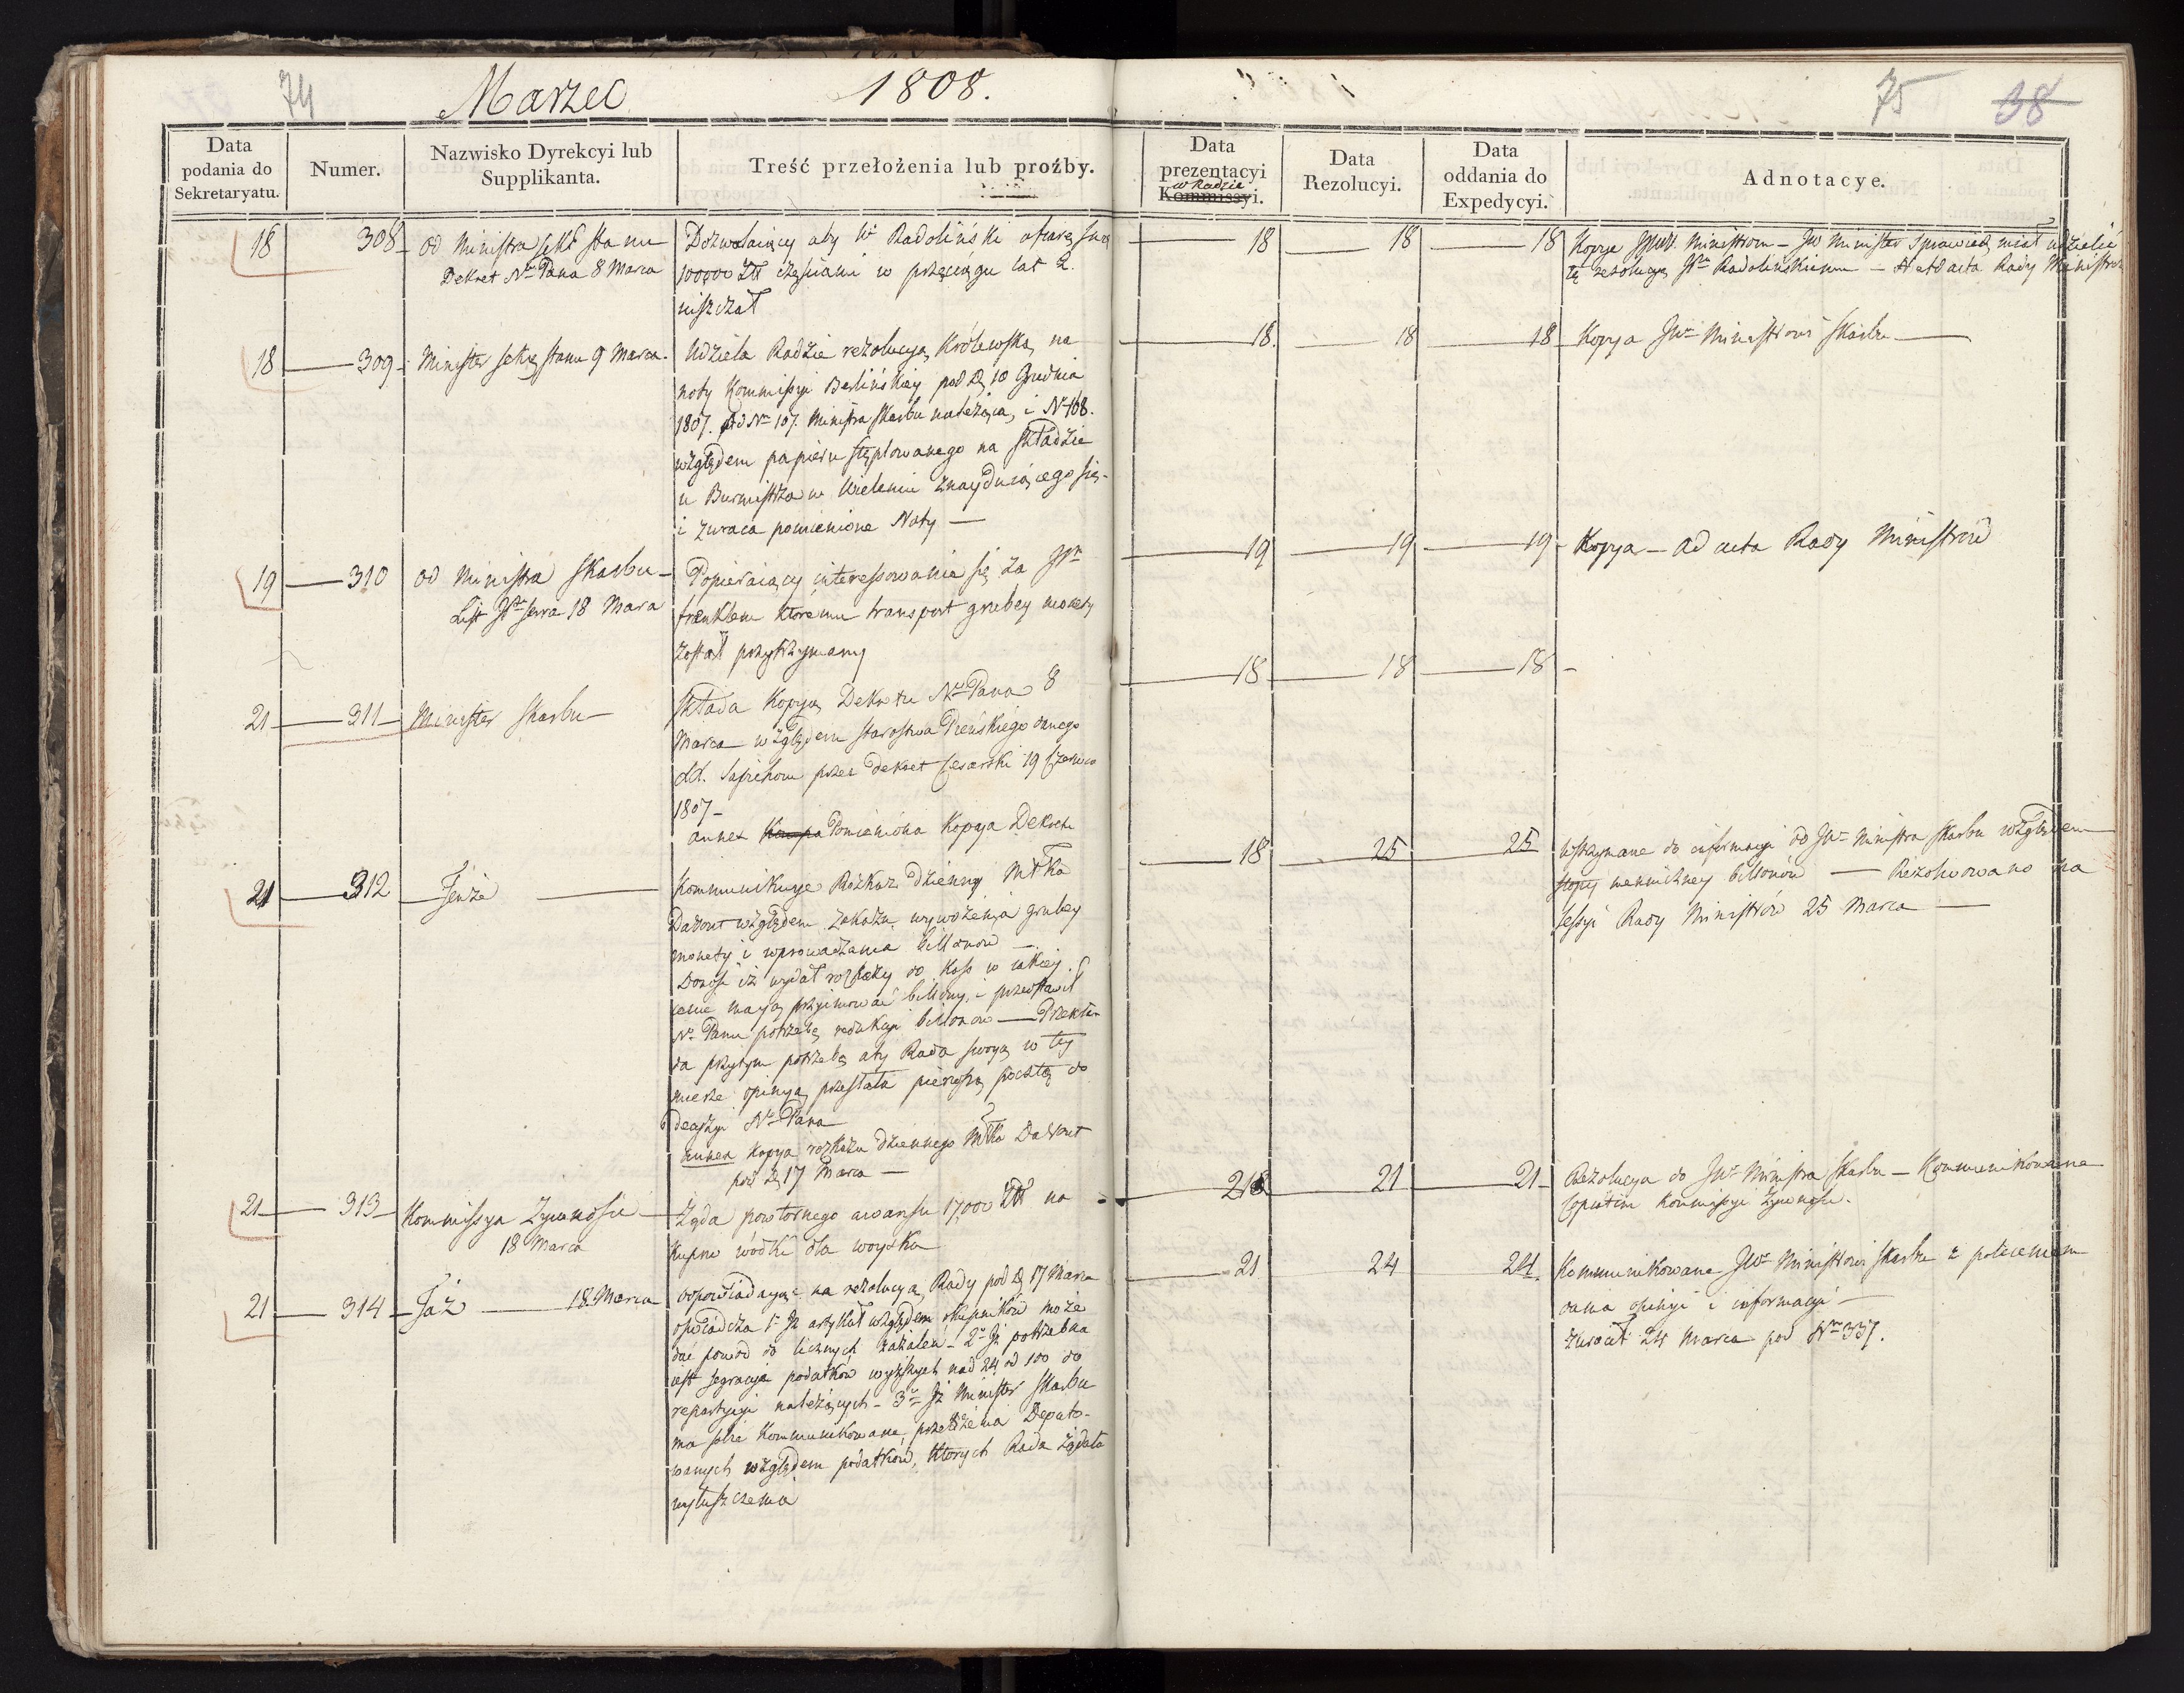 74
Marzec 1808.
75
38
Data podania do Sekretaryatu.
Numer.
Nazwisko Dyrekcyi lub Supplikanta.
Treść przełożenia lub proźby.
Data prezentacyi Kommissyi. w Radzie
Data Rezolucyi.
Data oddania do Expedycyi.
Adnotacye.
18 308 od Ministra Sekr Stanu
Dekret Nº Pana 8 Marca
Dozwalaiący aby Wº Radoliński ofiarę swą
100,000 Złł częściami w przeciągu lat 2.
niszczał
18 18 18
Kopya JWW. Ministrom – JW Minister Sprawied. miał udzielić
tę rezolucyą Radolińskiemu – ad acta Rady Ministrów
18 309 Minister Sekr. Stanu 9 Marca.
Udziela Radzie rezolucyą Królewską na
noty Kommissyi Berlińskiey pod D. 10 Grudnia
1807. ad Nrº 107. Ministra Skarbu należącą i Nº 108.
względem papieru stęplowanego na składzie
u Burmistrza w Wieleniu znayduiącego się
i zwraca pomienione Noty —
18. 18 18
Kopya JWº Ministrowi Skarbu
19 310 od Ministra Skarbu
List Serra 18 Marca
Popieraiący interessowania się za
frenklem któremu transport grubey monety
został przytrzymany
19 19 19
Kopya – ad acta Rady Ministrów
21 311 Minister Skarbu
Składa Kopyą Dekretu Nº Pana 8
Marca względem Starostwa Preńskiego danego
Sapiehom przez Dekret Cesarski 19 Czerwca
1807 –
annex Pomieniona Kopya Dekretu
18 18 18 –
21 312 Tenże
Kommunikuye Rozkaz dzienny Młka
Davout względem zakazu wywożenia grubey
monety i wprowadzania billonów —
Donosi iż wydał rozkazy do Kass w iakiey
cenie maią przyimować billony, i przedstawił
Nº Panu potrzebę redukcyi billonów — Przekła-
da przytym potrzebę aby Rada swoyą w tey
mierze opinyą przesłała pierwszą pocztą do
decyzyi Nº Pana
annex Kopya rozkazu dziennego Młka Davout
pod D. 17 Marca —
18 25 25
wstrzymane do informacyi do JWº Ministra Skarbu względem
stopy mennichney billonów — Rezolwowano na
Sessyi Rady Ministrów 25 Marca —
21 313 Kommissya Żywności
18 Marca
Żąda powtórnego awansu 17,000 Złł na
kupno wódki dla woyska
21 21 21
Rezolucya do JWº Ministra Skarbu – Kommunikowana
Kommissyi Żywności.
21 314 Taż 18. Marca
odpowiadaiąc na rezolucyą Rady pod D. 17 Marca
oświadcza 1º Iż artykuł względem skupników może
dać powód do licznych zażaleń – 2º Iż potrzebna
iest segracya podatków wyższych nad 24 od 100 do
repartycyi należących – 3º Iż Minister Skarbu
ma sobie kommunikowane przełożenia Deputo-
wanych względem podatków, których Rada żądała
wyłuszczenia
21 24 24.
Kommunikowane JWº Ministrowi Skarbu z poleceniem
dania opinyi i informacyi —
zwrócił 24 Marca pod Nrº 337.